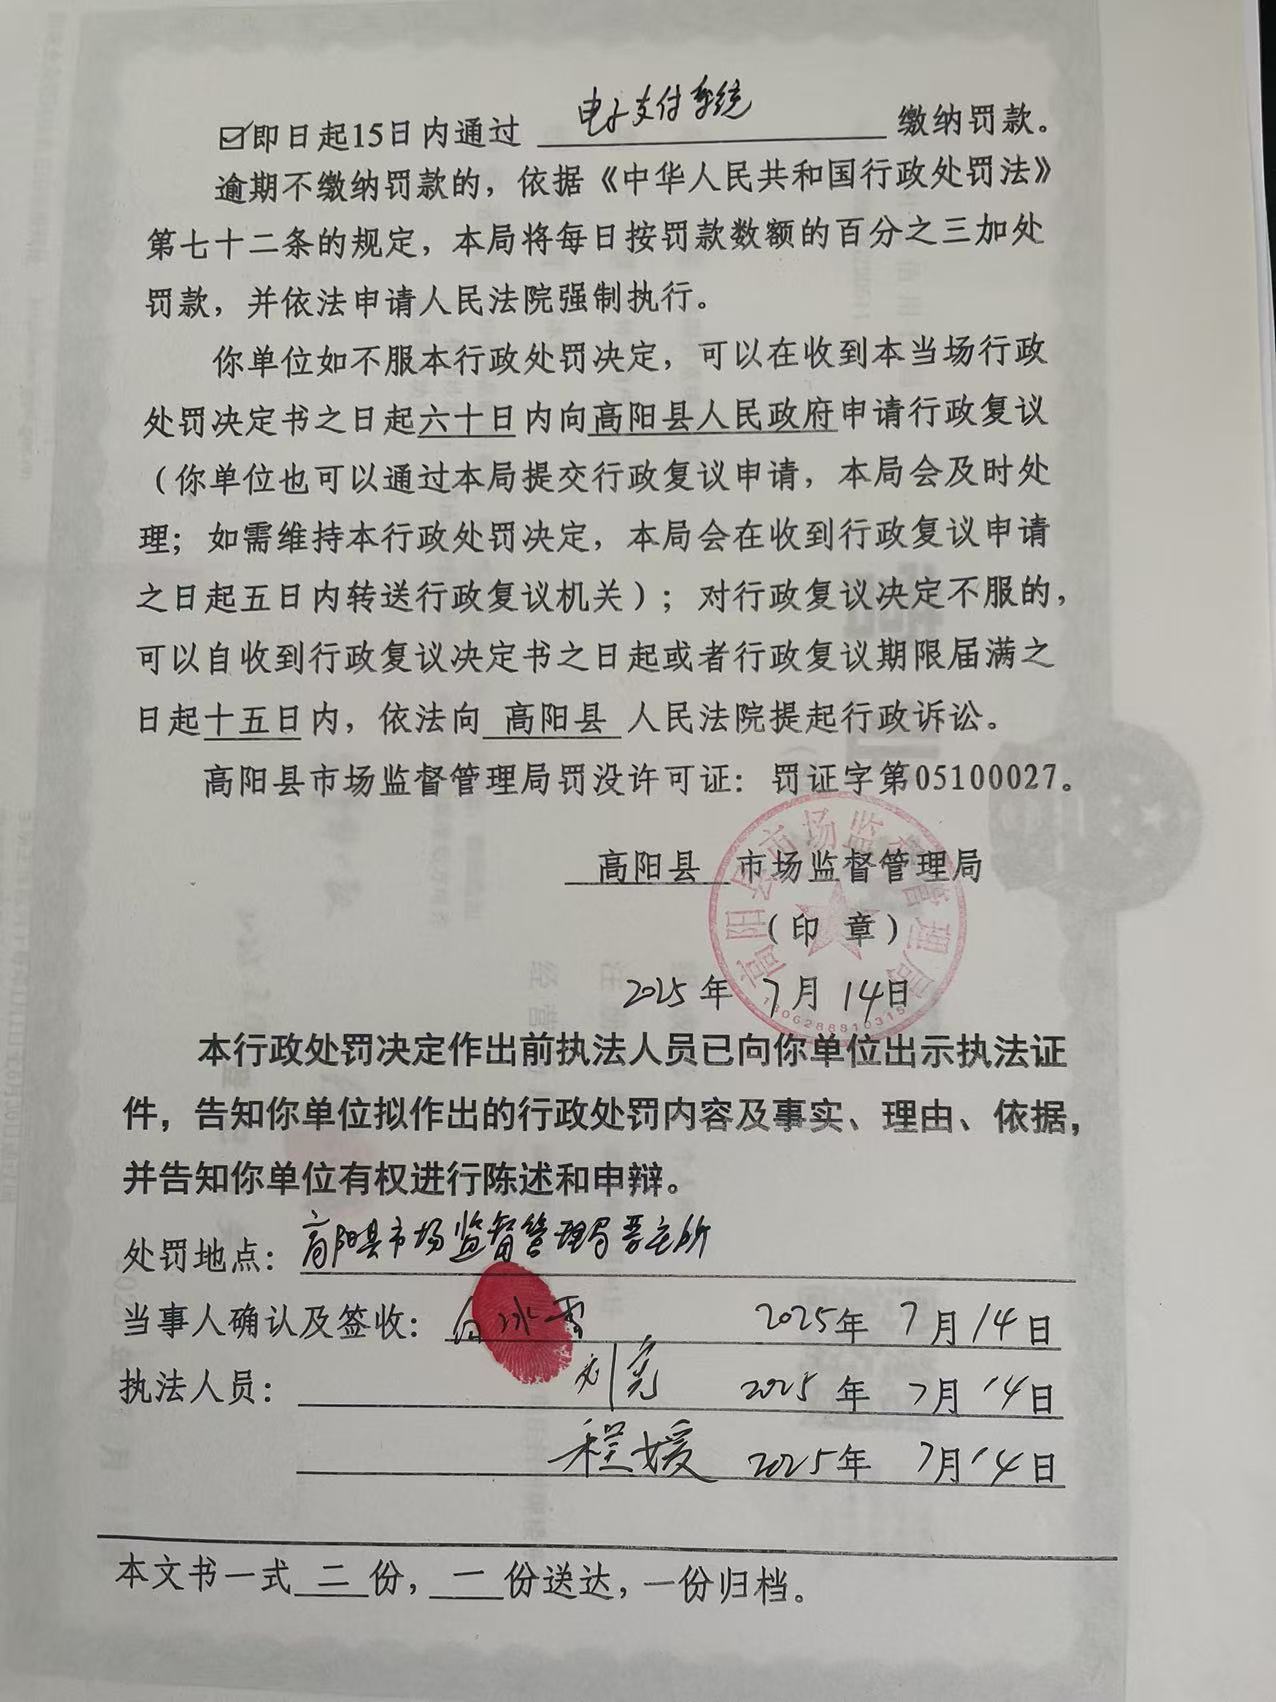 ☑即日起15日内通过 电子支付系统 缴纳罚款。
逾期不缴纳罚款的，依据《中华人民共和国行政处罚法》
第七十二条的规定，本局将每日按罚款数额的百分之三加处
罚款，并依法申请人民法院强制执行。
你单位如不服本行政处罚决定，可以在收到本当场行政
处罚决定书之日起六十日内向高阳县人民政府申请行政复议
（你单位也可以通过本局提交行政复议申请，本局会及时处
理；如需维持本行政处罚决定，本局会在收到行政复议申请
之日起五日内转送行政复议机关）；对行政复议决定不服的，
可以自收到行政复议决定书之日起或者行政复议期限届满之
日起十五日内，依法向 高阳县 人民法院提起行政诉讼。
高阳县市场监督管理局罚没许可证：罚证字第05100027。
高阳县 市场监督管理局
（印 章）
高阳县市场监督管理局
2025年 7月 14日
本行政处罚决定作出前执法人员已向你单位出示执法证
件，告知你单位拟作出的行政处罚内容及事实、理由、依据，
并告知你单位有权进行陈述和申辩。
处罚地点：高阳县市场监督管理局晋庄所
当事人确认及签收：白冰雪 2025年 7月14日
执法人员：刘亮 2025年 7月14日
程媛 2025年 7月14日
本文书一式 二 份， 一 份送达，一份归档。